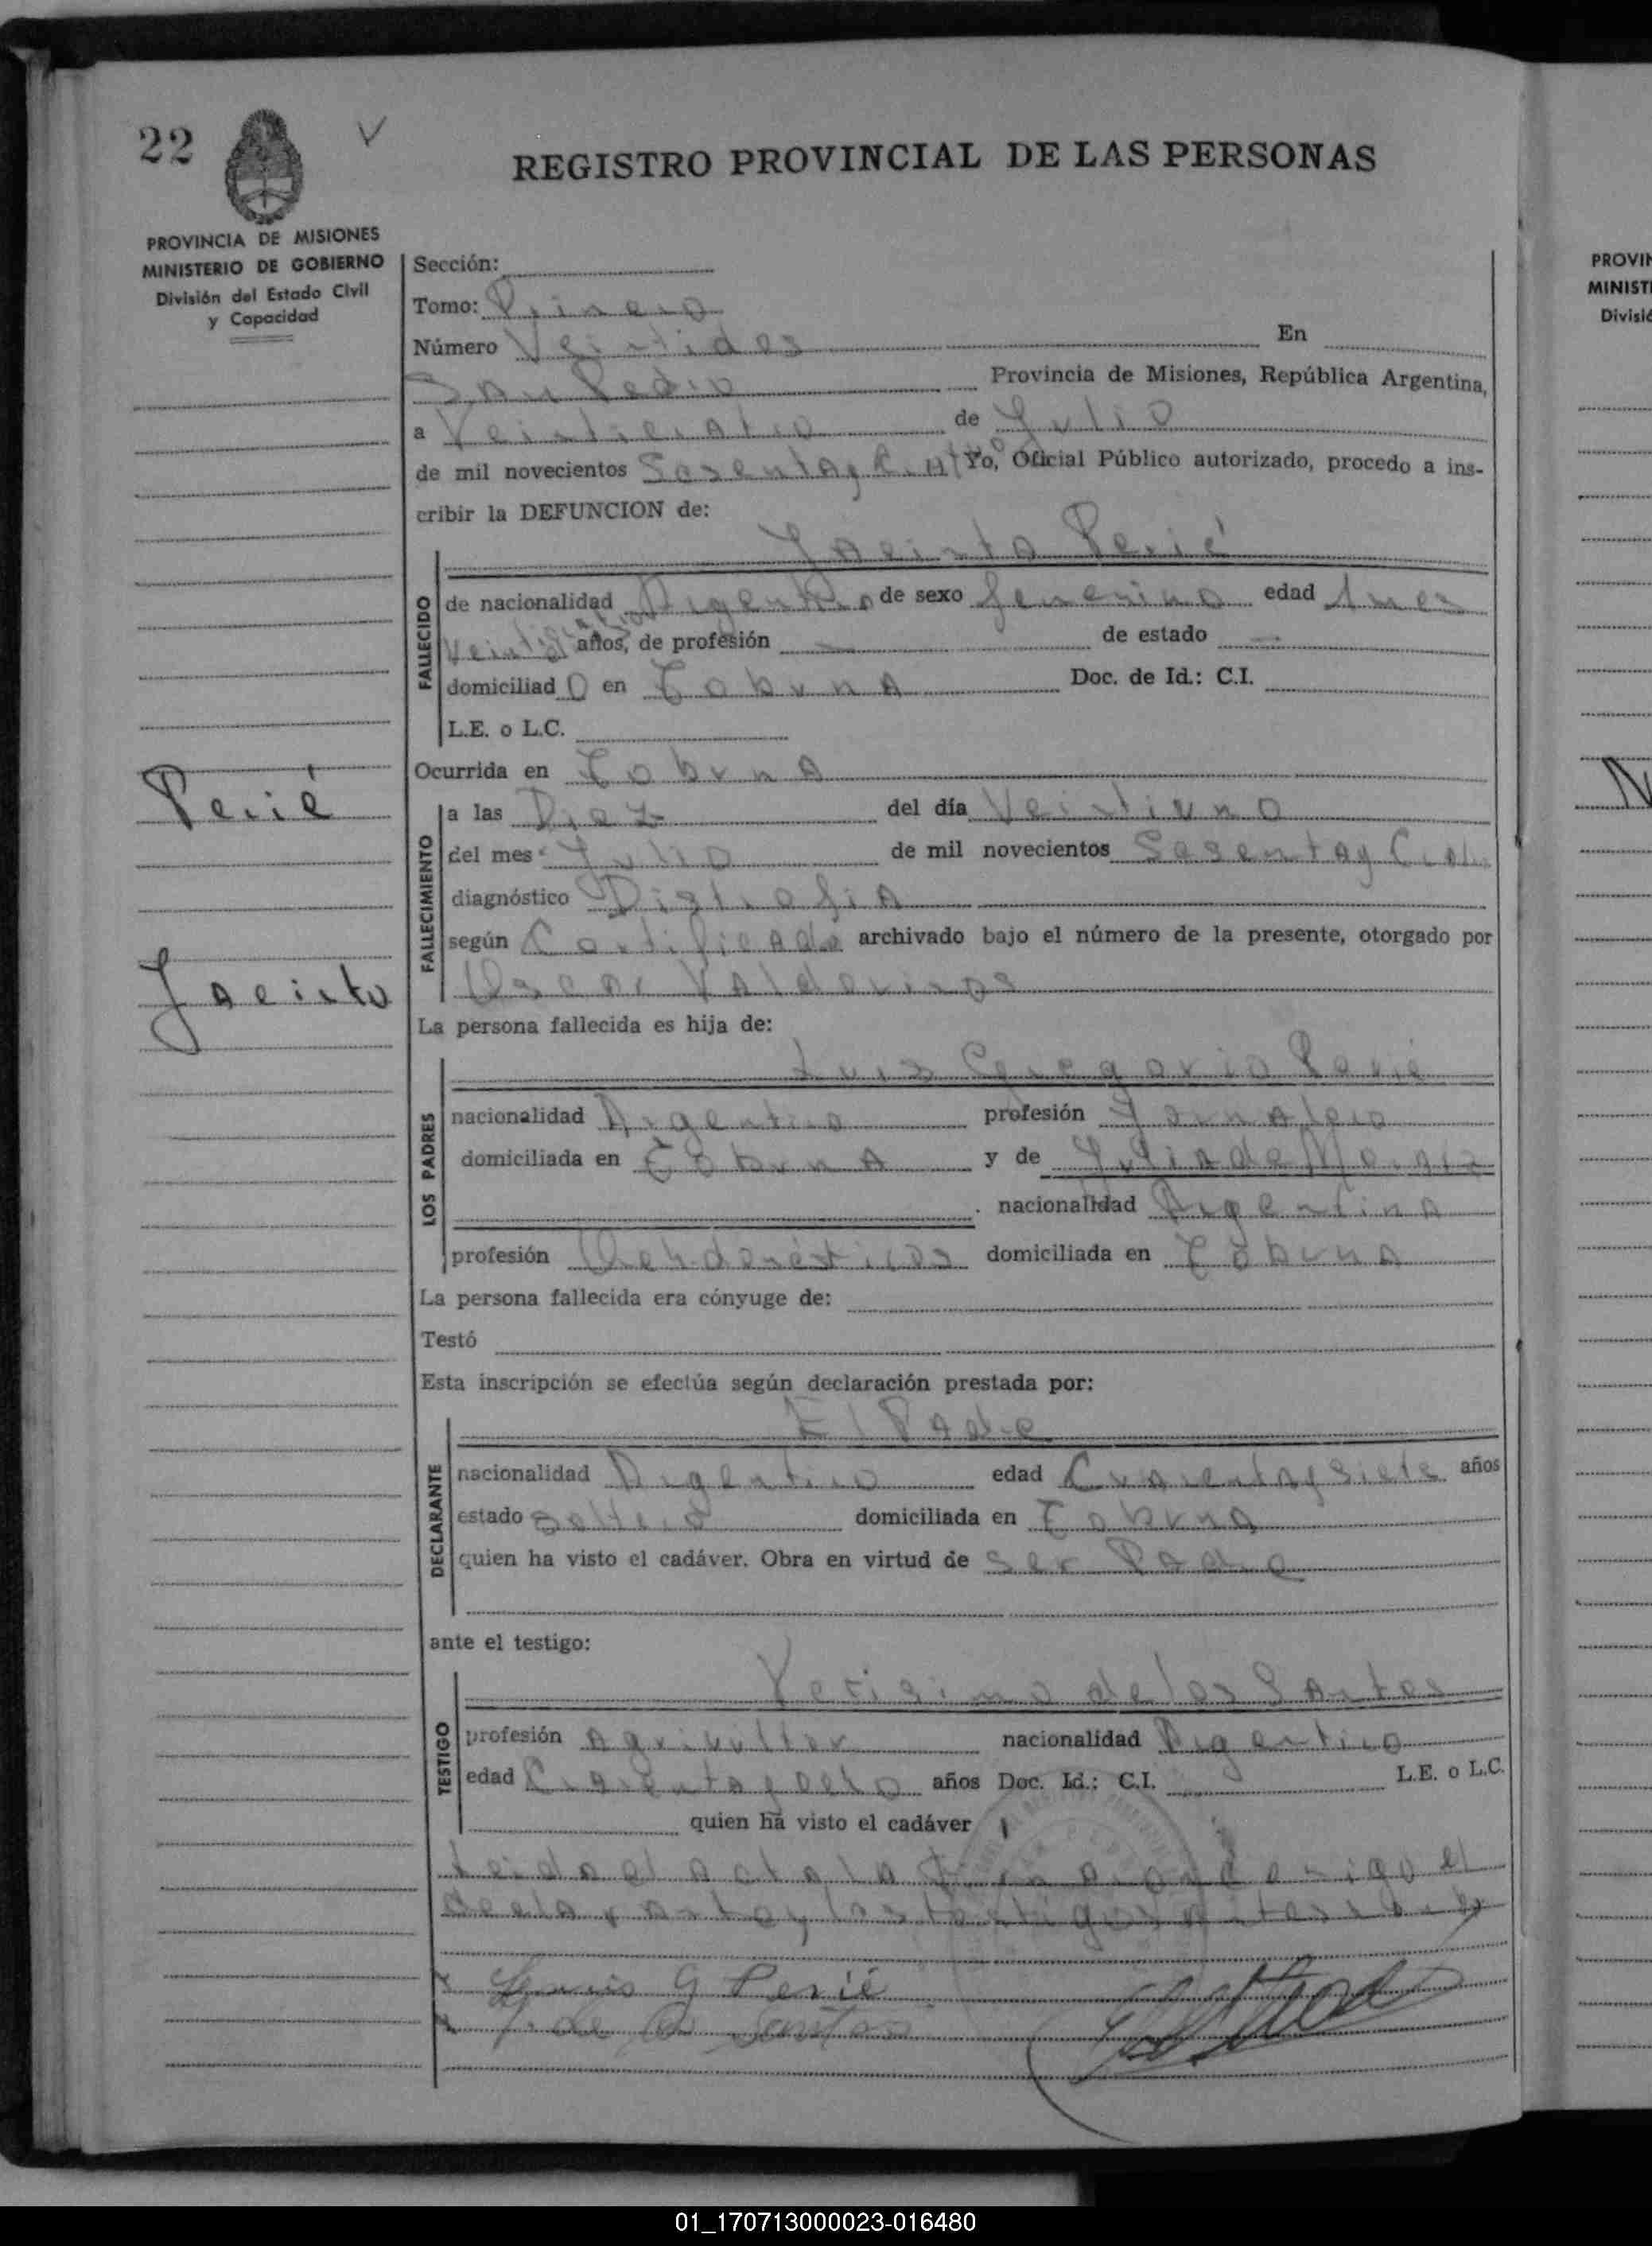 22
REGISTRO PROVINCIAL DE LAS PERSONAS
PROVINCIA DE MISIONES
MINISTERIO DE GOBIERNO
División del Estado Civil
y Capacidad
Sección:
Tomo: Primero
Número Veintidos En
San Pedro Provincia de Misiones, República Argentina,
a Veinticuatro de Julio
de mil novecientos Sesenta y Cuatro Yo, Oficial Público autorizado, procedo a ins-
cribir la DEFUNCION de:
Jacinto Perié
FALLECIDO
de nacionalidad Argentino de sexo femenino edad
años, de profesión — de estado —
domiciliado en Tobuna Doc. de Id.: C.I.
L.E. o L.C.
Ocurrida en Tobuna
Perié
FALLECIMIENTO
a las Diez del día Veintiuno
del mes Julio de mil novecientos Sesenta y Cuatro
diagnóstico Distrofia
según Certificado archivado bajo el número de la presente, otorgado por
Oscar Valdovinos
Jacinto
La persona fallecida es hija de:
Luis Gregorio Perié
LOS PADRES
nacionalidad Argentino profesión Jornalero
domiciliada en Tobuna y de Julia de
nacionalidad Argentina
profesión domiciliada en Tobuna
La persona fallecida era cónyuge de:
Testó
Esta inscripción se efectúa según declaración prestada por:
El Padre
DECLARANTE
nacionalidad Argentino edad Cuarenta y Siete años
estado Soltero domiciliada en Tobuna
quien ha visto el cadáver. Obra en virtud de Ser Padre
ante el testigo:
Verisimo de los Santos
TESTIGO
profesión Agricultor nacionalidad Argentino
edad años Doc. Id.: C.I. L.E. o L.C.
quien ha visto el cadáver
Leida el acta la firman conmigo el
declarante y los testigos
Luis G Perié
de los Santos
PROVIN
MINIST
Divisió
01_170713000023-016480